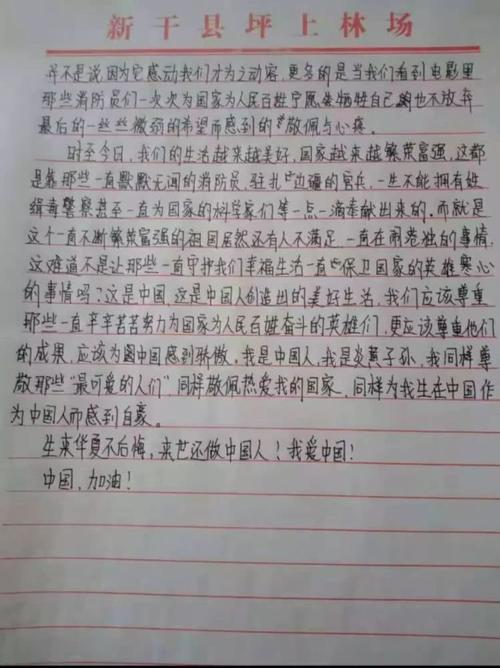 新干县坪上林场
并不是说因为它感动我们才为之动容，更多的是当我们看到电影里
那些消防员们一次次为国家为人民百姓宁愿牺牲自己的也不放弃
最后的一丝丝微弱的希望而感到的敬佩与心疼。
时至今日，我们的生活越来越美好，国家越来越繁荣富强，这都
是靠那些一直默默无闻的消防员，驻扎边疆的官兵，一生不能拥有姓
缉毒警察甚至一直为国家的科学家们等一点一滴奉献出来的，而就是
这个一直不断繁荣富强的祖国居然还有人不满足，一直在闹港独的事情，
这难道不是让那些一直守护我们幸福生活一直保卫国家的英雄寒心
的事情吗？这是中国，这是中国人创造出的美好生活，我们应该尊重
那些一直辛辛苦苦努力为国家为人民百姓奋斗的英雄们，更应该尊重他们
的成果，应该为中国感到骄傲，我是中国人，我是炎黄子孙，我同样尊
敬那些“最可爱的人们”同样敬佩热爱我的国家，同样为我生在中国作
为中国人而感到自豪。
生来华夏不后悔，来世还做中国人！我爱中国！
中国，加油！